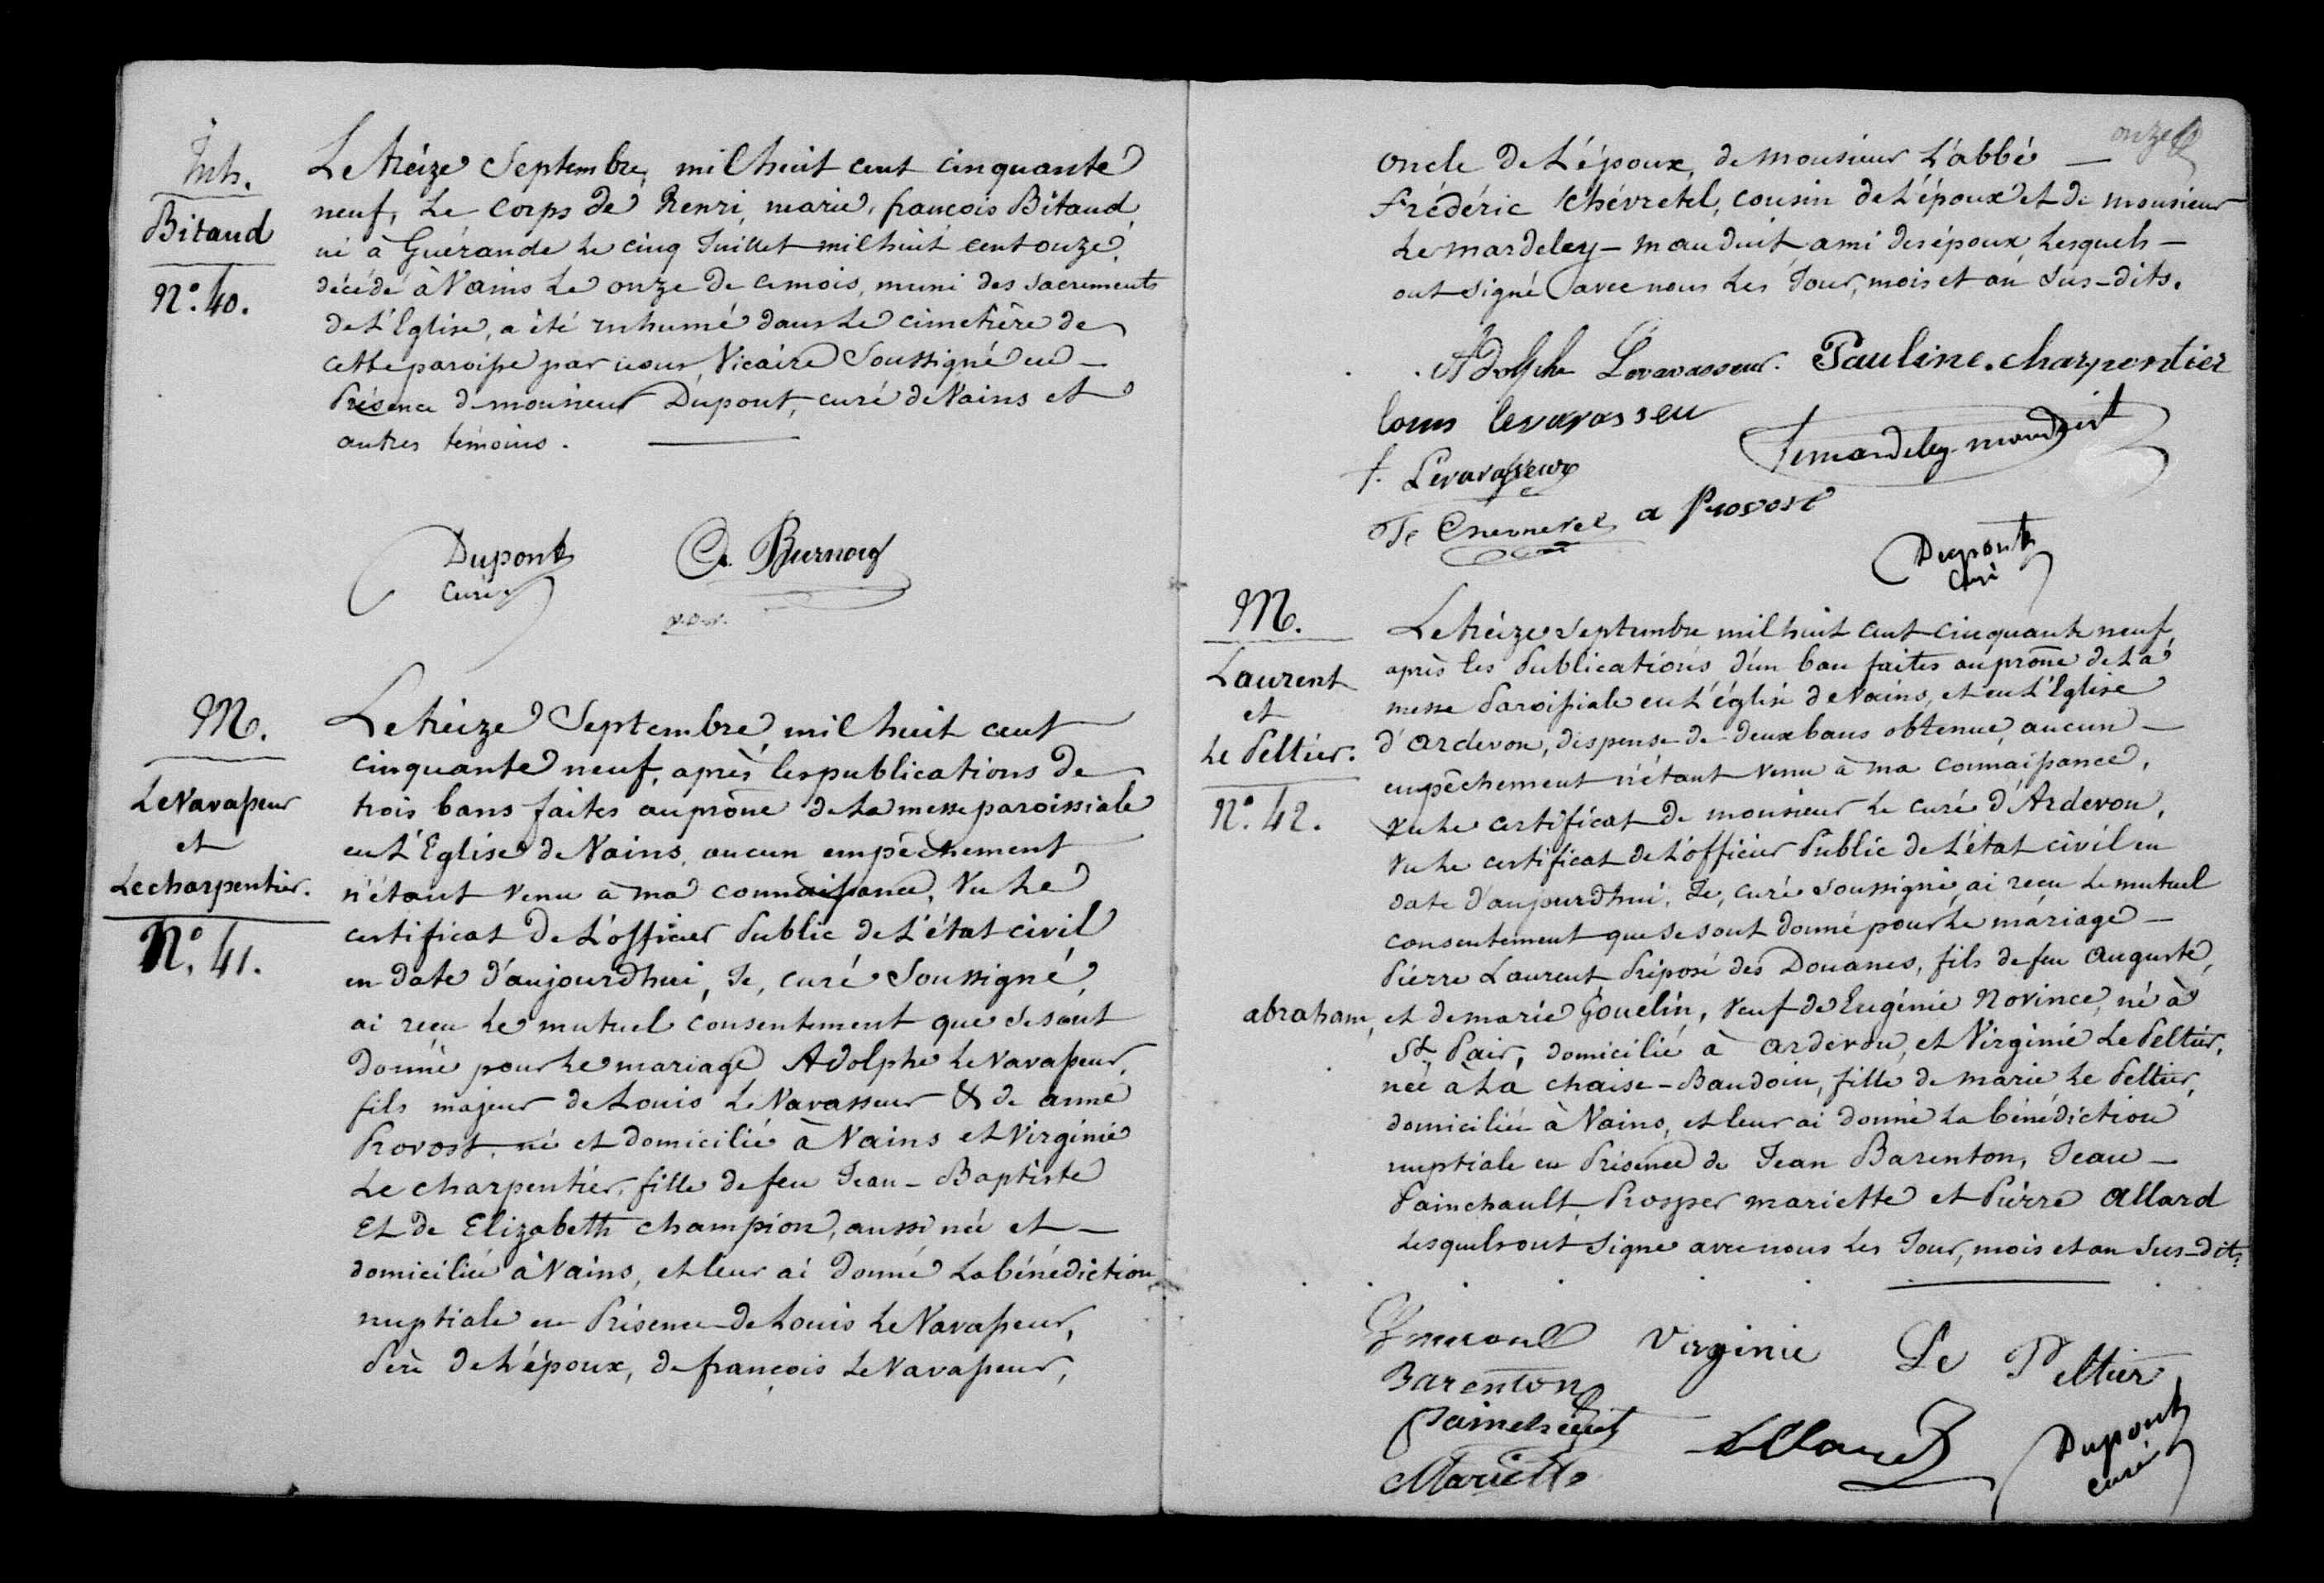 Inh.
Bitaud
N°. 40.
Le treize Septembre, mil huit cent cinquante
neuf, Le Corps de henri, marie, françois Bitaud
né à Guérande Le cinq Juillet mil huit cent onze,
décédé à Vains Le onze de ce mois, muni des Sacrements
de L'Eglise, a été inhumé dans Le cimetière de
cette paroisse par nous, Vicaire Soussigné en —
Présence de monsieur Dupont, curé de Vains et
autres témoins.
Dupont
Curé
M.
LeVavasseur
et
Lecharpentier.
N°. 41.
Le treize Septembre, mil huit cent
cinquante neuf, après les publications de
trois bans faites au prône de La messe paroissiale
en L'Eglise de Vains, aucun empêchement
n'étant venu à ma connaissance, Vu Le
certificat de L'officier Public de L'état civil
en date d'aujourd'hui, Je, curé Soussigné,
ai reçu Le mutuel consentement que Se sont
donné pour Le mariage Adolphe LeVavasseur,
fils majeur de Louis LeVavasseur & de anne
Provost, né et domicilié à Vains et Virginie
Le charpentier, fille de feu Jean-Baptiste
Et de Elizabeth champion, aussi née et —
domiciliée à Vains, et leur ai donné La bénédiction
nuptiale en Présence de Louis LeVavasseur,
Père de L'époux, de françois LeVavasseur,
onze
oncle de L'époux, de monsieur L'abbé —
frédéric Chévretel, cousin de L'époux et de monsieur
Le mardeley-mauduit, ami des époux, Lesquels —
ont signé avec nous Les Jour, mois et an Sus-dits.
Adolphe Levavasseur. Pauline.charpentier
louis levavasseu
f. Levavasseur
Lemardeley-mauduit
a Provost
Dupont
Curé
M.
Laurent
et
Le Peltier.
N°. 42.
Le treize Septembre mil huit cent cinquante neuf,
après les Publications d'un ban faites au prône de La
messe Paroissiale en L'église de Vains, et en L'Eglise
d'ardevon, dispense de deux bans obtenue, aucun —
empêchement n'étant venu à ma connaissance,
Vu Le certificat de monsieur Le curé d'Ardevon,
Vu Le certificat de L'officier Public de L'état civil en
date d'aujourd'hui, Je, curé Soussigné, ai reçu Le mutuel
consentement que se sont donné pour Le mariage —
Pierre Laurent, Préposé des Douanes, fils de feu auguste,
abraham, et de marie Gouelin, veuf de Eugénie Novince, né à
St. Pair, domicilié à ardevon, et Virginie Le Peltier,
née à La chaise-Baudoin, fille de marie Le Peltier,
domiciliée à Vains, et leur ai donné La bénédiction
nuptiale en Présence de Jean Barenton, Jean —
Painchault, Prosper mariette et Pierre allard
Lesquels ont Signé avec nous Les Jour, mois et an Sus-dits.
Virginie Le Peltier
Barenton
Painchault
Allard
Dupont
Curé
Mariette